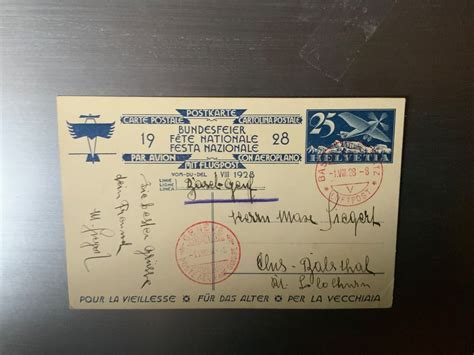 POSTKARTE
CARTE POSTALE CARTOLINA POSTALE
19 BUNDESFEIER 28
FÊTE NATIONALE
FESTA NAZIONALE
PAR AVION MIT FLUGPOST CON AEROPLANO
VOM-DU-DEL 1 VIII 1928
LINIE
LIGNE
LINEA
Basel-Genf
25
HELVETIA
BAS
-1.VIII.28-8
V
LUFTPOST
Herrn Max Siegert
Clus-Balsthal
Kt. Solothurn
beste Grüsse
dein Freund
M.
POUR LA VIEILLESSE • FÜR DAS ALTER • PER LA VECCHIAIA